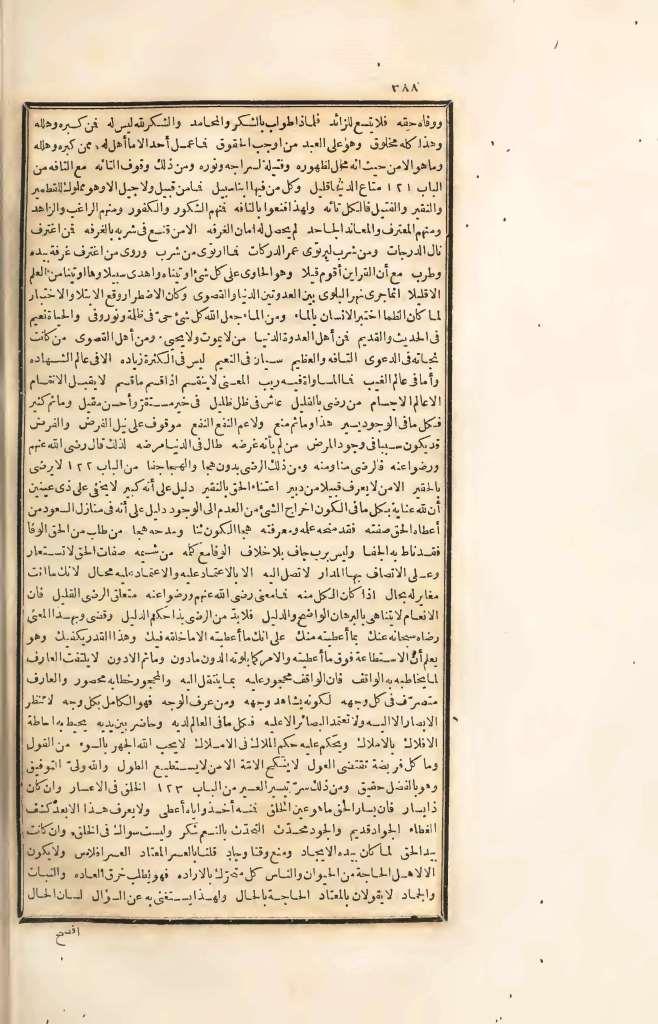 ٣٨٨
ووفاه حقه فلا يتسع للزائد فلماذا طولب بالشكر والمحامد والشكر لله ليس له فمن كبره وهلله
وهذا كله مخلوق وهو على العبد من أوجب الحقوق فما عمل أحد الا ما أهل له، ممن كبره وهلله
وما هو الامن حيث انه محل لظهوره وفتيلة لسراجه ونوره ومن ذلك وقوف التائه مع التافه من
الباب ١٢١ متاع الدنيا قليل وكل من فيها ابناء سبيل فما من قبيل ولا جيل الا وهو مملوك للقطمير
والنقير والفتيل فالكل تائه ولهذا قنعوا بالتافه فنهم الشكور والكفور ومنهم الراغب والزاهد
ومنهم المعترف والمعاند الجاحد لم يحصل له امان الغرفه الامن قنع في شربه بالغرفه فمن اغترف
نال الدرجات ومن شرب ليرتوى عمر الدركات فما ارتوى من شرب وروى من اغترف غرفة بيده
وطرب مع أن القراين أقوم قيلا وهو الحاوى على كل شئ اوتيناه واهدى سبيلا وما اوتينا من العلم
الا قليلا انما جرى نهر البلوى بين العدوتين الدنيا والقصوى وكان الاضطرار وقع الابتلاء والاختبار
لما كان الظما اختبر الانسان بالماء ومن الماء جعل الله كل شئ حي في ظلمة ونور وفي والحياة نعيم
في الحديث والقديم فمن أهل العدوة الدنيا من لا يموت ولا يحيى ومن أهل القصوى من كانت
نجاته في الدعوى التافه والعظيم سيان في النعيم ليس في الكثرة زياده الا في عالم الشهاده
وأما في عالم الغيب فما المساواة فيه ريب المعنى لا ينقسم اذا قسم ما قسم لا يقبل الانقسام
الا عالم الاجسام من رضى بالقليل عاش في ظل ظليل في خير مستقر وأحسن مقيل وما ثم كثير
فكل ما في الوجود يسير هذا وما ثم منع ولا عم النفع النفع موقوف على نيل الغرض والغرض
قد يكون سببا في وجود المرض من لم يأته غرضه طال في الدنيا مرضه لذلك قال رضى الله عنهم
ورضوا عنه فالرضى منا ومنه ومن ذلك الرضى بدون هجا والهجا جنا من الباب ١٢٢ لا يرضى
بالحقير الامن لا يعرف قبيلا من دبير اعتناء الحق بالنقير دليل على أنه كبير لا يخفى على ذى عينين
أن لله عناية بكل ما في الكون اخراج الشئ من العدم الى الوجود دليل على أنه في منازل السعود من
أعطاه الحق صفته فقد منحه علمه ومعرفته هجا الكون ثنا ومدحه هجا من طلب من الحق الوفا
فقد ناط به الجفا وليس برب جاف بلا خلاف الوفا مع كله من شيمه صفات الحق لا تستعار
وعلى الاتصاف بها المدار لا تصل اليه الا بالاعتماد عليه والاعتماد عليه محال لانك ما انت
مغاير له بحال اذا كان الكل منه فما معنى رضى الله عنهم ورضوا عنه متعلق الرضى القليل فان
الانعام لا يتناهى بالبرهان الواضح والدليل فلا بد من الرضى بذا حكم الدليل وقضى وبهذا المعنى
رضاه سبحانه عنك بما أعطيته منك على انك ما أعطيته الا ما خلقه فيك وهذا القدر يكفيك وهو
يعلم أن الاستطاعة فوق ما أعطيته والامر كما بلوته الدون مادون وما ثم الادون لا يلتفت العارف
لما يخاطبه به الواقف فان الواقف محجور عليه بما ينتقل اليه والمحجور خطابه محصور والعارف
متصرف في كل وجهه لكونه يشاهد وجهه ومن عرف الوجه فهو الكامل بكل وجه لا تنظر
الابصار الا اليه ولا تعتمد البصائر الا عليه فكل ما في العالم لديه وحاضر بين يديه يحيط به احاطة
الافلاك بالاملاك ويحكم عليه حكم الملاك في الاملاك لا يحب الله الجهر بالسوء من القول
وما كل فريضة تقتضى العول لا ينكح الامة الامن لا يستطيع الطول والله ولى التوفيق
وهو بالفضل حقيق ومن ذلك سر تيسير العسير من الباب ١٢٣ الخلق في الاعسار وان كان
ذا يسار فان يسار الحق ما هو عين الخلق فنه أخذ واياه أعطى ولا يعرف هذا الا بعد كشف
الغطاء الجواد قديم والجود محدث التحدث بالنعم شكر وليست سوالك في الخلق وان كانت
بيد الحق لما كان بيده الايجاد ومنع وقتا وجاد قلنا بالعسر المعتاد العسر افلاس ولا يكون
الا لاهل الحاجة من الحيوان والناس كل متحرك بالاراده فهو يطلب خرق العاده والنبات
والجماد لا يقولان بالمعتاد الحاجة بالحال ولهذا يستغنى به عن السؤال لسان الحال
افصح